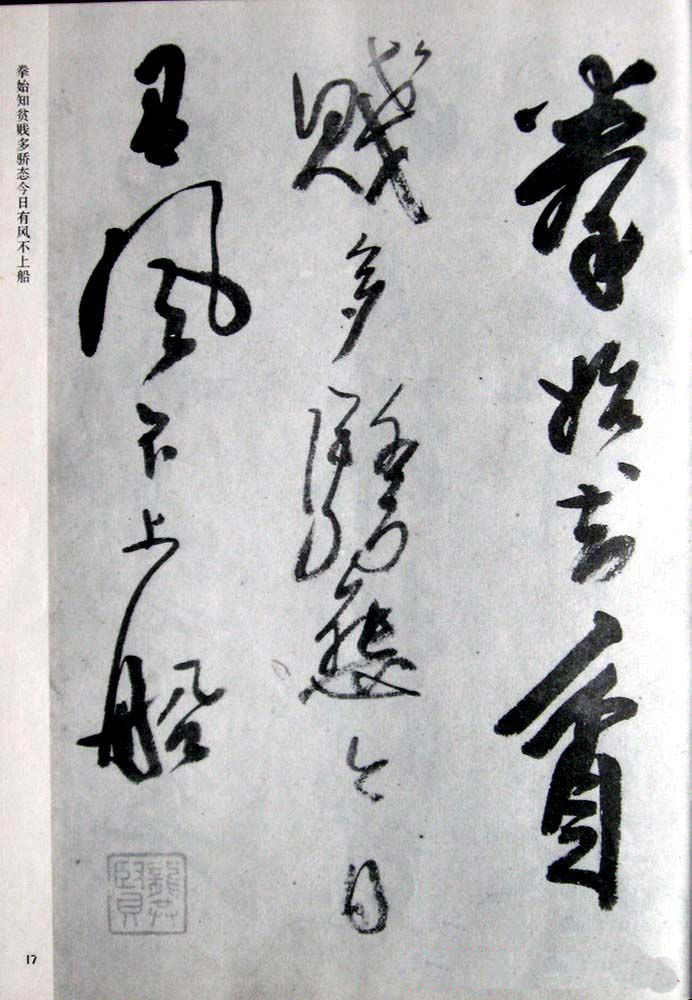 拳始知貧
賤多驕態今日
有風不上船
拳始知贫贱多骄态今日有风不上船
17